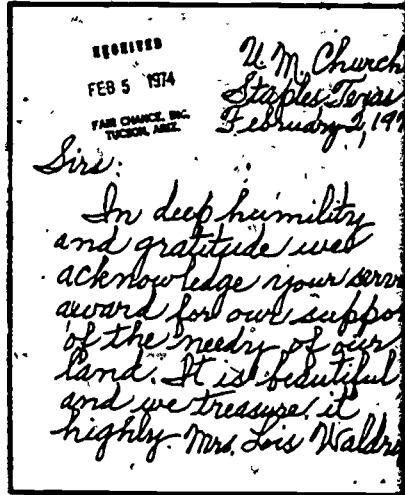 RECEIVED
FEB 5 1974
FAIR CHANCE, INC.
TUCSON, ARIZ.
U. M. Church
Staples Texas
February 2, 197
Sirs:
In deep humility
and gratitude we
acknowledge your serv
award for our suppo
of the needy of our
land. It is beautiful
and we treasure it
highly. Mrs. Lois Waldri